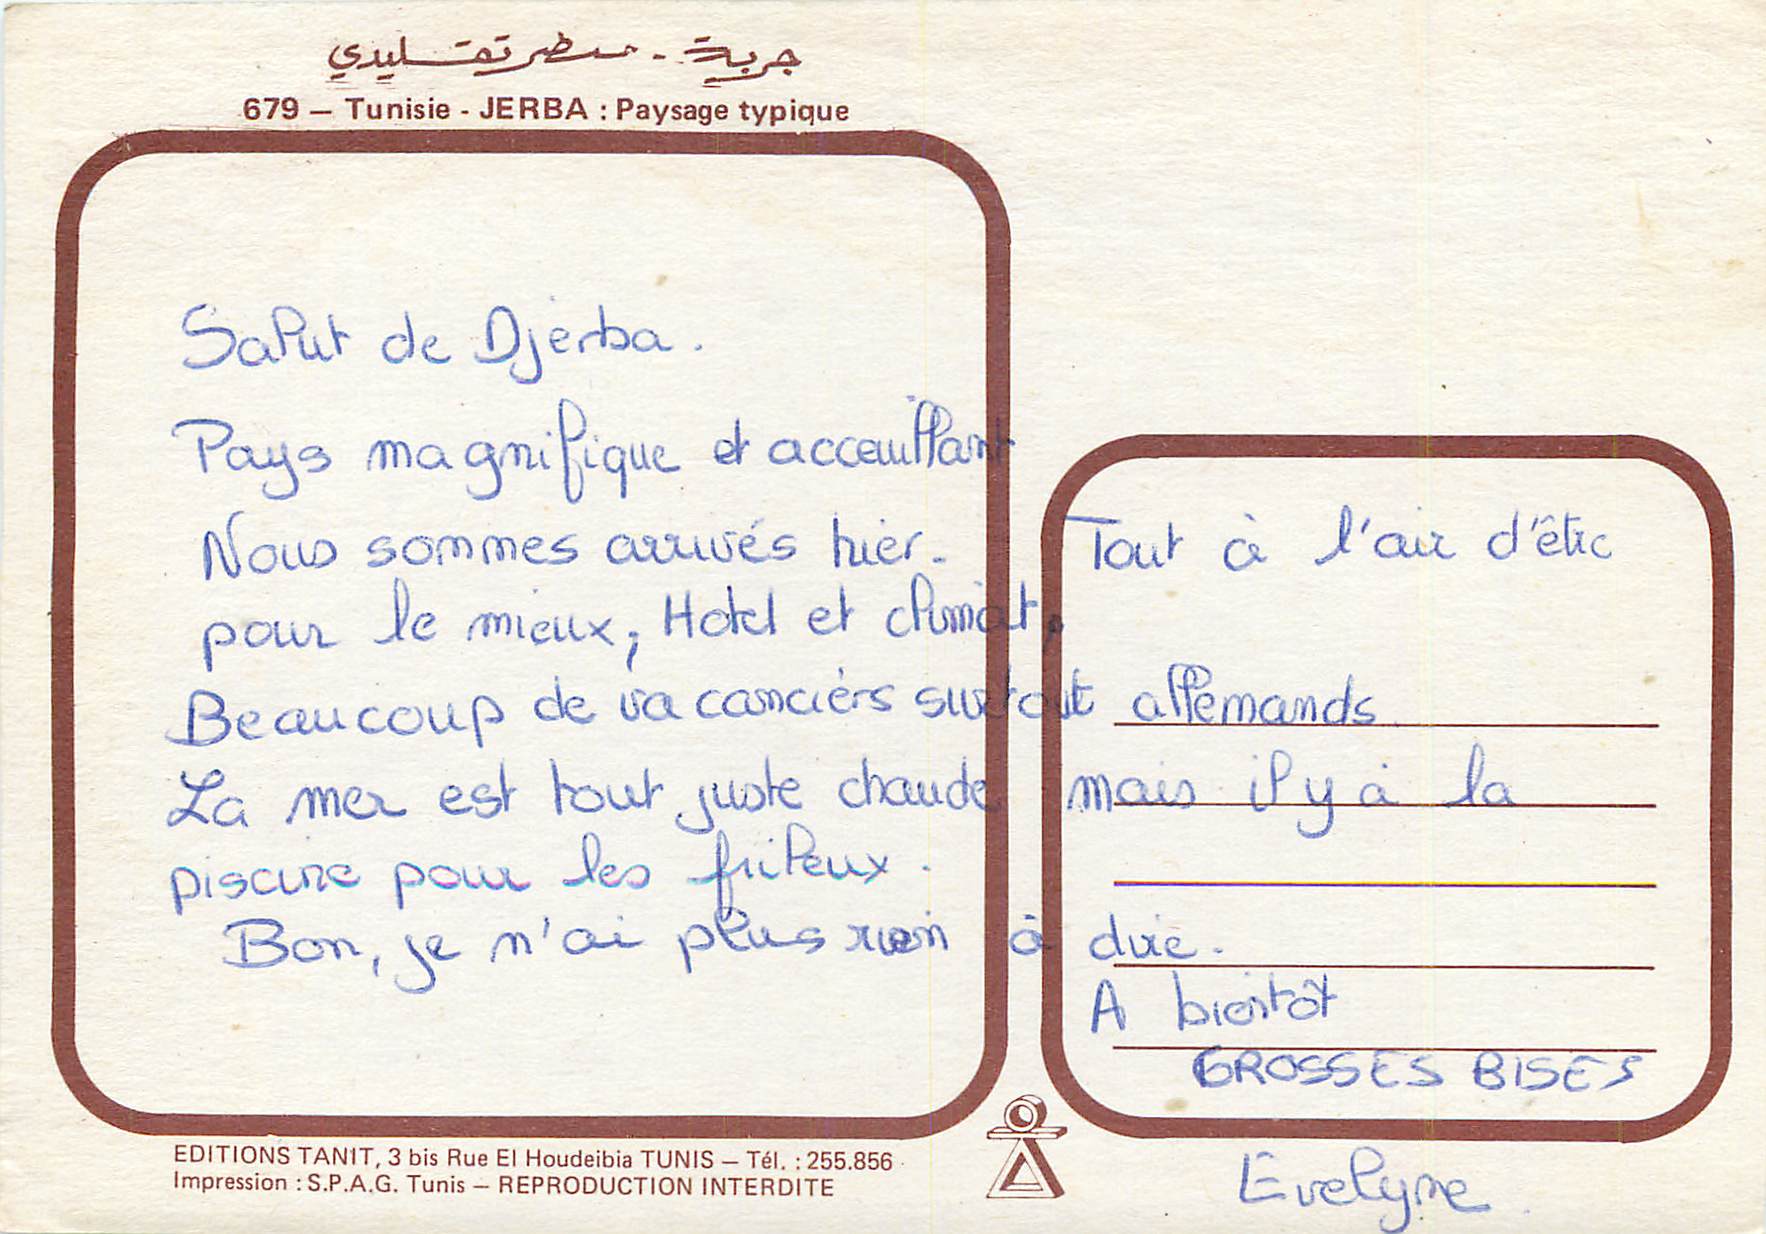 جربة - منظر تقليدي
679 – Tunisie - JERBA : Paysage typique
Salut de Djerba.
Pays magnifique et acceuillant
Nous sommes arrivés hier. Tout à l'air d'être
pour le mieux, Hotel et climat,
Beaucoup de vacanciers surtout allemands
La mer est tout juste chaude mais il y à la
piscine pour les frileux.
Bon, je n'ai plus rien à dire.
A bientôt
GROSSES BISES
Evelyne
EDITIONS TANIT, 3 bis Rue El Houdeibia TUNIS – Tél. : 255.856
Impression : S.P.A.G. Tunis – REPRODUCTION INTERDITE